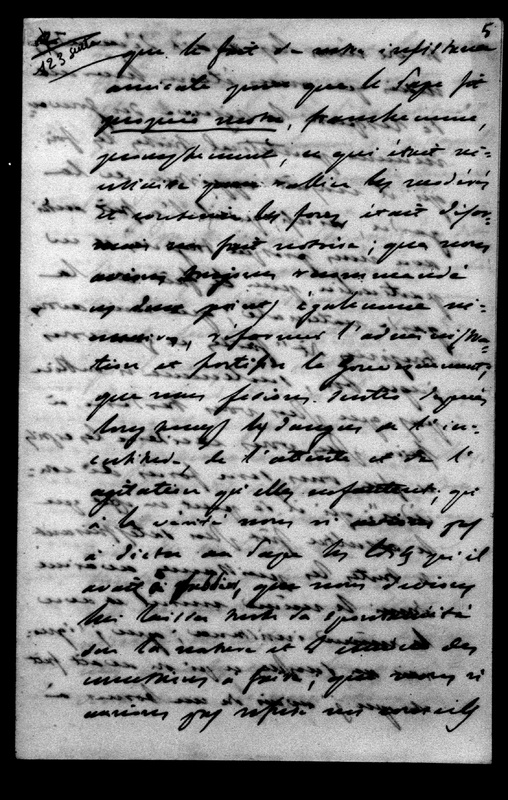 5
123 suite
que le fait de notre insistance
amicale pour que le Pape fit
proprio motu, franchement,
promptement, ce qui était né-
cessaire pour rallier les modérés
et contenir les forces, était désor-
mais un fait notoire ; que nous
avions toujours recommandé
ces deux points également né-
cessaires, réformer l'administra-
tion et fortifier le Gouvernement,
que nous faisions sentir depuis
longtemps les dangers de l'in-
certitude, de l'attente et de l'
agitation qu'elles enfantent ; qu'
à la vérité nous n'avions pas
à dicter au Pape les lois qu'il
avait à publier, que nous devions
lui laisser toute sa spontanéité
sur la nature et l'étendue des
concessions à faire ; que nous n'
avions pas refusé nos conseils